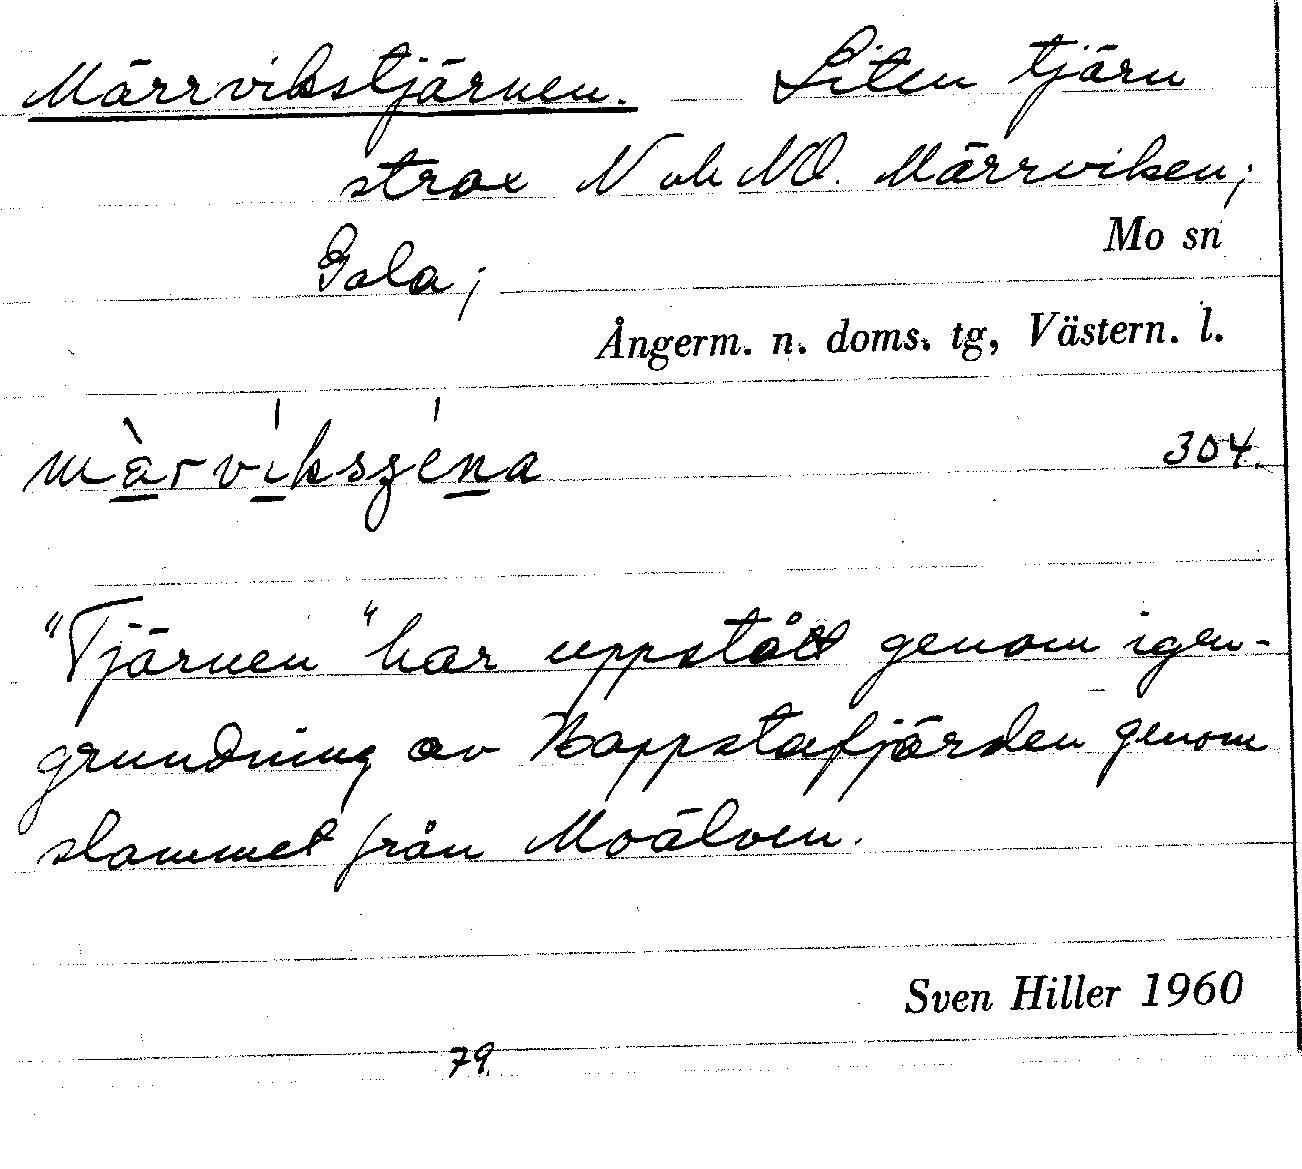 Märrvikstjärnen. Liten tjärn
strax N och NO. Märrviken;
Gala; Mo sn
Ångerm. n. doms. tg, Västern. l.
304.
"Tjärnen" har uppstått genom igen-
grundning av Happstafjärden genom
slammet från Moälven.
Sven Hiller 1960
79.